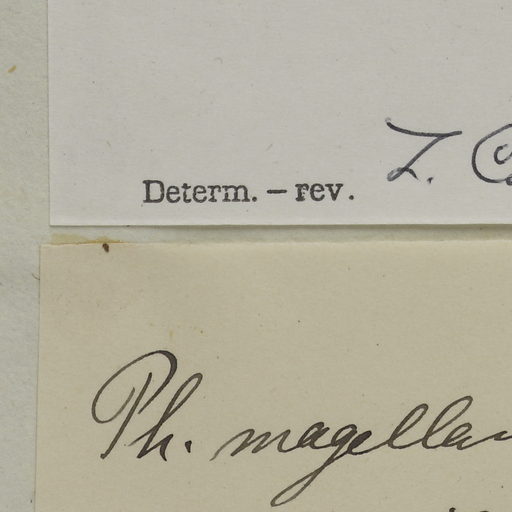 Determ. – rev. Z.
Ph. magellan